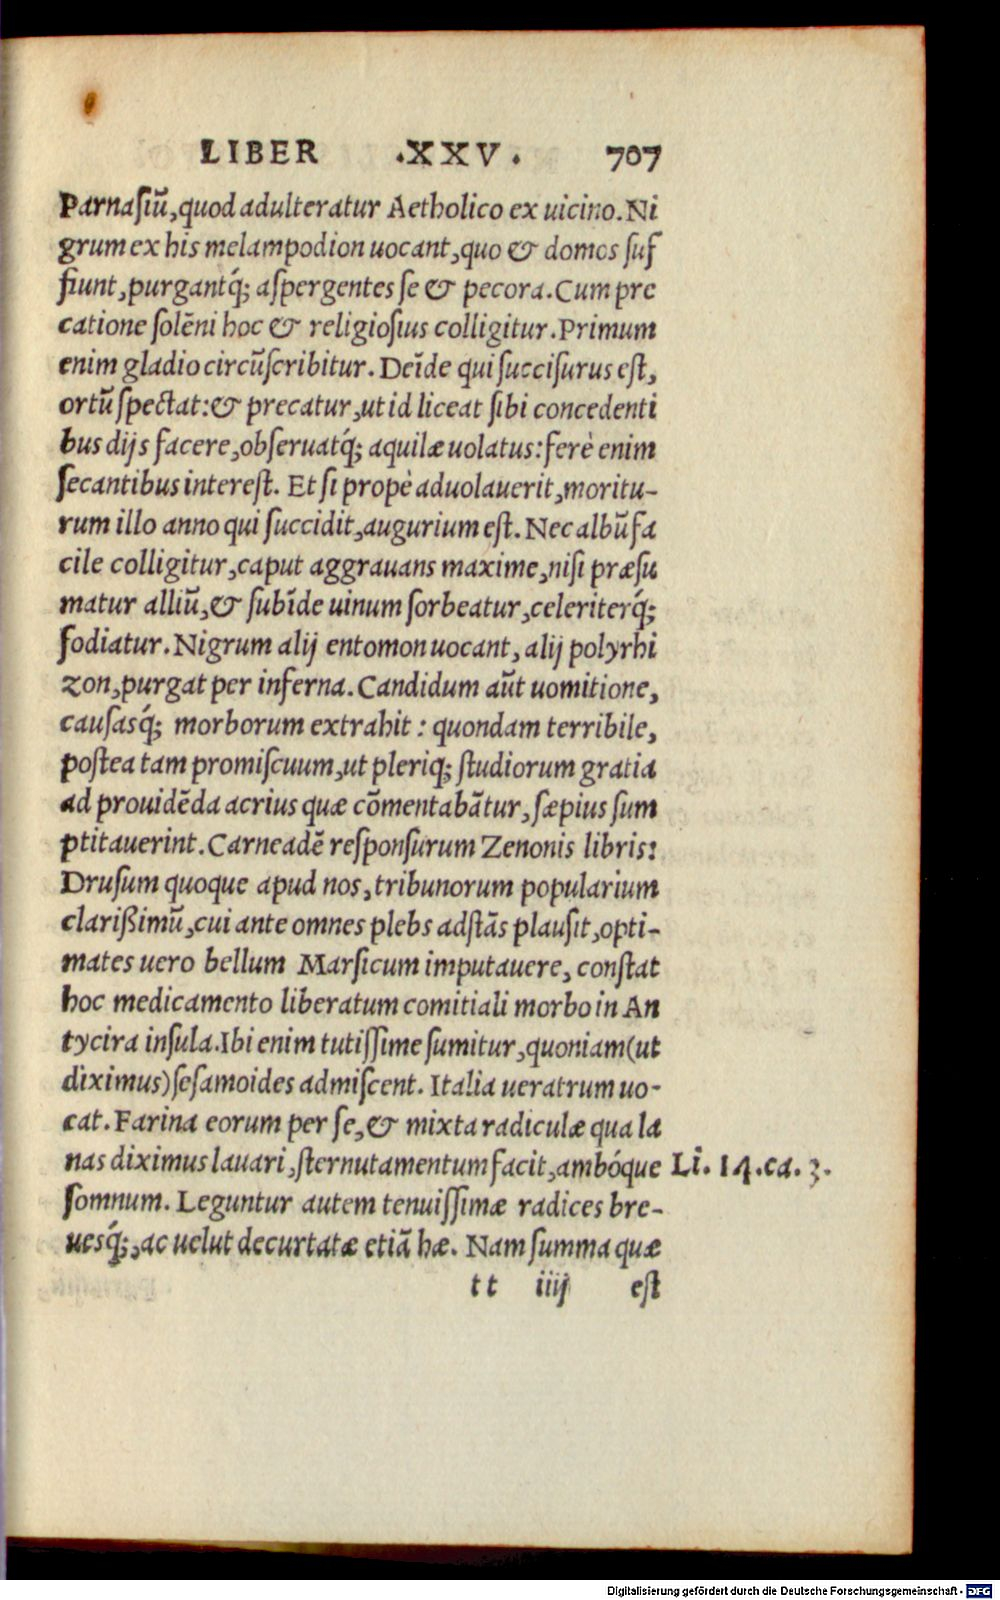 LIBER .XXV. 707
Parnasiū, quod adulteratur Aetholico ex uicino. Ni
grum ex his melampodion uocant, quo & domos suf
fiunt, purgantq́; aspergentes se & pecora. Cum pre
catione solēni hoc & religiosius colligitur. Primum
enim gladio circūscribitur. Deīde qui succisurus est,
ortū spectat: & precatur, ut id liceat sibi concedenti
bus dijs facere, obseruatq́; aquilæ uolatus: ferè enim
secantibus interest. Et si propè aduolauerit, moritu-
rum illo anno qui succidit, augurium est. Nec albū fa
cile colligitur, caput aggrauans maxime, nisi præsu
matur alliū, & subīde uinum sorbeatur, celeriterq́;
fodiatur. Nigrum alij entomon uocant, alij polyrhi
zon, purgat per inferna. Candidum aūt uomitione,
causasq́; morborum extrahit: quondam terribile,
postea tam promiscuum, ut pleriq; studiorum gratia
ad prouidēda acrius quæ cōmentabātur, sæpius sum
ptitauerint. Carneadē responsurum Zenonis libris:
Drusum quoque apud nos, tribunorum popularium
clarißimū, cui ante omnes plebs adstās plausit, opti-
mates uero bellum Marsicum imputauere, constat
hoc medicamento liberatum comitiali morbo in An
tycira insula. Ibi enim tutissime sumitur, quoniam (ut
diximus) sesamoides admiscent. Italia ueratrum uo-
cat. Farina eorum per se, & mixta radiculæ qua la
nas diximus lauari, sternutamentum facit, ambóque Li. 14. ca. 3.
somnum. Leguntur autem tenuissimæ radices bre-
uesq́;, ac uelut decurtatæ etiā hæ. Nam summa quæ
tt iiij est
Digitalisierung gefördert durch die Deutsche Forschungsgemeinschaft - DFG